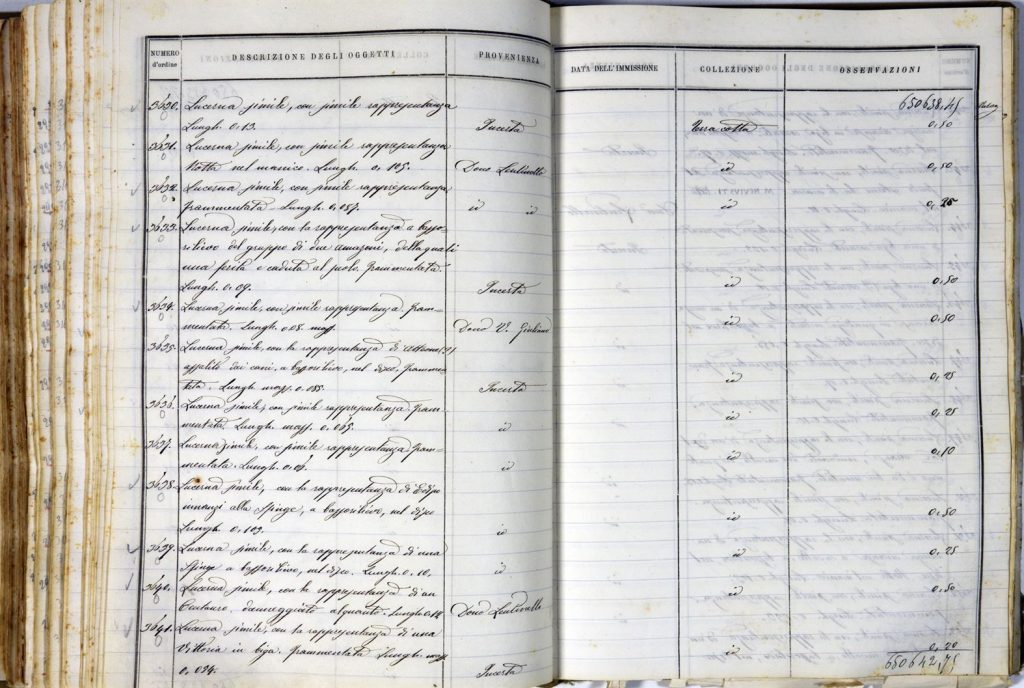 NUMERO d'ordine DESCRIZIONE DEGLI OGGETTI PROVENIENZA DATA DELL'IMMISSIONE COLLEZIONE OSSERVAZIONI
650638,45
3630. Lucerna simile, con simile rappresentanza
Lungh. 0,13. Incerta Terra cotta 0,50
3631. Lucerna simile, con simile rappresentanza
Rotta nel manico. Lungh. 0,105. Dono id 0,50
3632. Lucerna simile, con simile rappresentanza
frammentata - Lungh. 0,057. id id id 0,25
3633. Lucerna simile, con la rappresentanza a basso-
rilievo del gruppo di due amazoni, delle quali
una ferita e caduta al suolo. Frammentata.
Lungh. 0,09. Incerta id 0,50
3634. Lucerna simile, con simile rappresentanza. Fram-
mentata. Lungh. 0,08. mass. Dono Giuliano id 0,50
3635. Lucerna simile, con la rappresentanza di Atteone
assalito dai cani, a bassorilievo, nel disco, framme-
tata. Lungh. mass. 0,088. Incerta id 0,25
3636. Lucerna simile, con simile rappresentanza. Fram-
mentata. Lungh. mass. 0,065. id id 0,25
3637. Lucerna simile, con simile rappresentanza. Fram-
mentata. Lungh. 0,06. id id 0,10
3638. Lucerna simile, con la rappresentanza di Edipo
innanzi alla Sfinge, a bassorilievo, nel disco
Lungh. 0,103. id id 0,50
3639. Lucerna simile, con la rappresentanza di una
Sfinge a bassorilievo, nel disco. Lungh. 0,10. id id 0,25
3640. Lucerna simile, con la rappresentanza di un
Centauro, danneggiato alquanto. Lungh. Dono id 0,50
3641. Lucerna simile, con la rappresentanza di una
Vittoria in biga. Frammentata. Lungh. mass.
0,094. Incerta id 0,20
650642,75